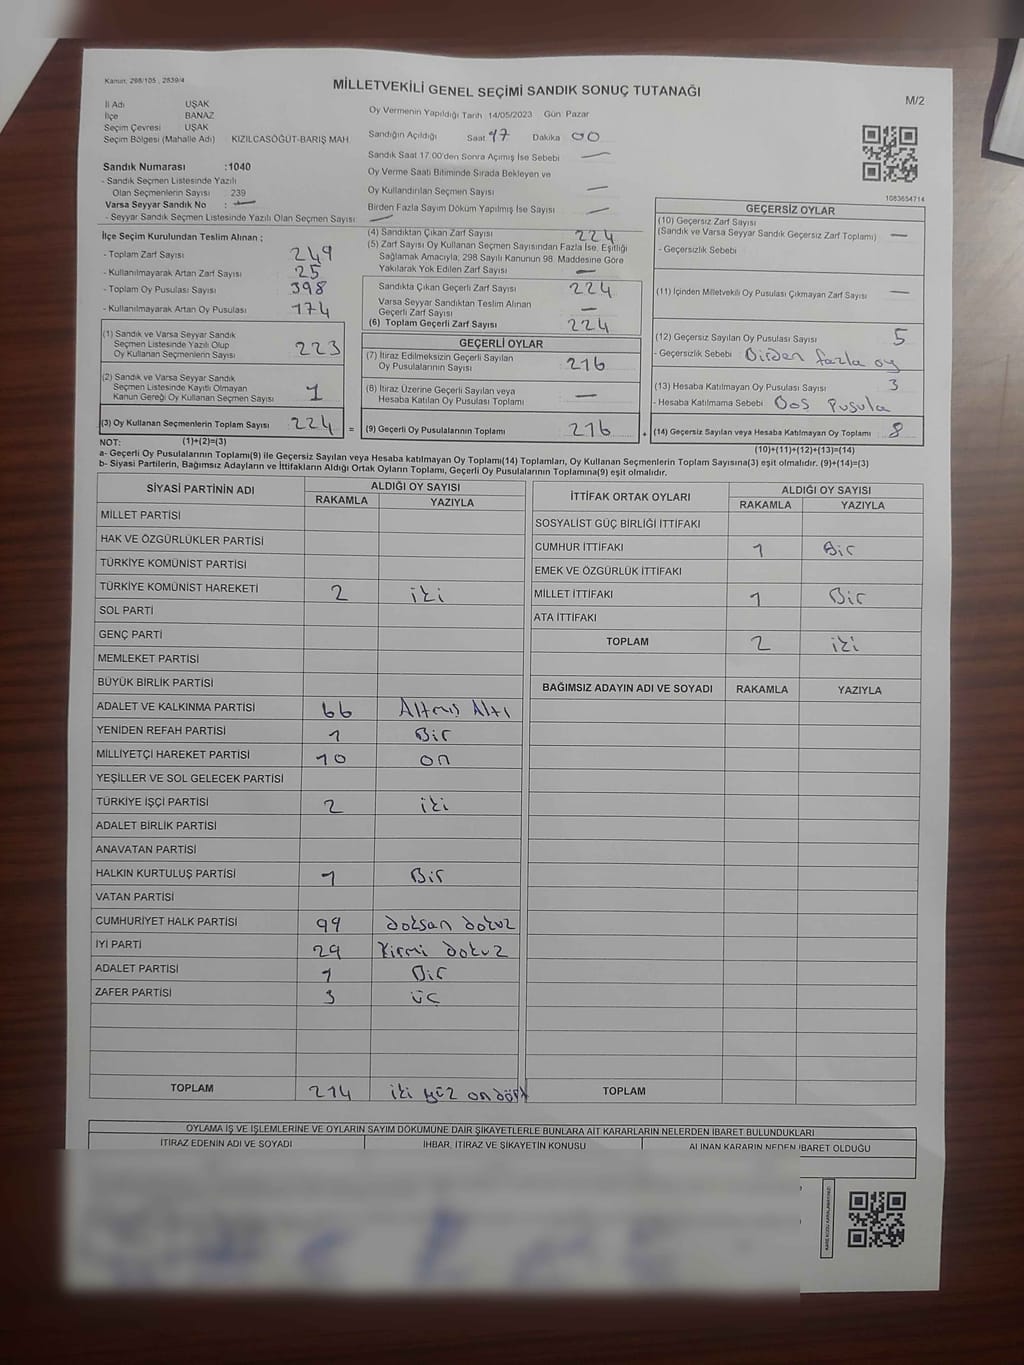 Kanun: 298/105 , 2839/4
MİLLETVEKİLİ GENEL SEÇİMİ SANDIK SONUÇ TUTANAĞI
M/2
İl Adı UŞAK
İlçe BANAZ
Seçim Çevresi UŞAK
Seçim Bölgesi (Mahalle Adı) KIZILCASÖĞÜT-BARIŞ MAH.
Sandık Numarası :1040
- Sandık Seçmen Listesinde Yazılı
Olan Seçmenlerin Sayısı 239
Varsa Seyyar Sandık No : —
- Seyyar Sandık Seçmen Listesinde Yazılı Olan Seçmen Sayısı: —
Oy Vermenin Yapıldığı Tarih 14/05/2023 Gün Pazar
Sandığın Açıldığı Saat 17 Dakika 00
Sandık Saat 17.00'den Sonra Açımış İse Sebebi —
Oy Verme Saati Bitiminde Sırada Bekleyen ve
Oy Kullandırılan Seçmen Sayısı —
Birden Fazla Sayım Döküm Yapılmış İse Sayısı —
1083654714
İlçe Seçim Kurulundan Teslim Alınan ;
- Toplam Zarf Sayısı 249
- Kullanılmayarak Artan Zarf Sayısı 25
- Toplam Oy Pusulası Sayısı 398
- Kullanılmayarak Artan Oy Pusulası 174
(1) Sandık ve Varsa Seyyar Sandık
Seçmen Listesinde Yazılı Olup
Oy Kullanan Seçmenlerin Sayısı 223
(2) Sandık ve Varsa Seyyar Sandık
Seçmen Listesinde Kayıtlı Olmayan
Kanun Gereği Oy Kullanan Seçmen Sayısı 1
(3) Oy Kullanan Seçmenlerin Toplam Sayısı 224
(4) Sandıktan Çıkan Zarf Sayısı 224
(5) Zarf Sayısı Oy Kullanan Seçmen Sayısından Fazla İse, Eşitliği
Sağlamak Amacıyla; 298 Sayılı Kanunun 98. Maddesine Göre
Yakılarak Yok Edilen Zarf Sayısı —
Sandıkta Çıkan Geçerli Zarf Sayısı 224
Varsa Seyyar Sandıktan Teslim Alınan
Geçerli Zarf Sayısı —
(6) Toplam Geçerli Zarf Sayısı 224
GEÇERLİ OYLAR
(7) İtiraz Edilmeksizin Geçerli Sayılan
Oy Pusulalarının Sayısı 216
(8) İtiraz Üzerine Geçerli Sayılan veya
Hesaba Katılan Oy Pusulası Toplamı —
= (9) Geçerli Oy Pusulalarının Toplamı 216
GEÇERSİZ OYLAR
(10) Geçersiz Zarf Sayısı
(Sandık ve Varsa Seyyar Sandık Geçersiz Zarf Toplamı) —
- Geçersizlik Sebebi
(11) İçinden Milletvekili Oy Pusulası Çıkmayan Zarf Sayısı —
(12) Geçersiz Sayılan Oy Pusulası Sayısı 5
- Geçersizlik Sebebi Birden fazla oy
(13) Hesaba Katılmayan Oy Pusulası Sayısı 3
- Hesaba Katılmama Sebebi Bos Pusula
+ (14) Geçersiz Sayılan veya Hesaba Katılmayan Oy Toplamı 8
NOT: (1)+(2)=(3)
(10)+(11)+(12)+(13)=(14)
a- Geçerli Oy Pusulalarının Toplamı(9) ile Geçersiz Sayılan veya Hesaba katılmayan Oy Toplamı(14) Toplamları, Oy Kullanan Seçmenlerin Toplam Sayısına(3) eşit olmalıdır. (9)+(14)=(3)
b- Siyasi Partilerin, Bağımsız Adayların ve İttifakların Aldığı Ortak Oyların Toplamı, Geçerli Oy Pusulalarının Toplamına(9) eşit olmalıdır.
SİYASİ PARTİNİN ADI ALDIĞI OY SAYISI
RAKAMLA YAZIYLA
MİLLET PARTİSİ
HAK VE ÖZGÜRLÜKLER PARTİSİ
TÜRKİYE KOMÜNİST PARTİSİ
TÜRKİYE KOMÜNİST HAREKETİ 2 iki
SOL PARTİ
GENÇ PARTİ
MEMLEKET PARTİSİ
BÜYÜK BİRLİK PARTİSİ
ADALET VE KALKINMA PARTİSİ 66 Altmış Altı
YENİDEN REFAH PARTİSİ 1 Bir
MİLLİYETÇİ HAREKET PARTİSİ 10 on
YEŞİLLER VE SOL GELECEK PARTİSİ
TÜRKİYE İŞÇİ PARTİSİ 2 iki
ADALET BİRLİK PARTİSİ
ANAVATAN PARTİSİ
HALKIN KURTULUŞ PARTİSİ 1 Bir
VATAN PARTİSİ
CUMHURİYET HALK PARTİSİ 99 doksan dokuz
İYİ PARTİ 29 Yirmi dokuz
ADALET PARTİSİ 1 Bir
ZAFER PARTİSİ 3 üç
TOPLAM 214 iki yüz ondört
İTTİFAK ORTAK OYLARI ALDIĞI OY SAYISI
RAKAMLA YAZIYLA
SOSYALİST GÜÇ BİRLİĞİ İTTİFAKI
CUMHUR İTTİFAKI 1 Bir
EMEK VE ÖZGÜRLÜK İTTİFAKI
MİLLET İTTİFAKI 1 Bir
ATA İTTİFAKI
TOPLAM 2 iki
BAĞIMSIZ ADAYIN ADI VE SOYADI RAKAMLA YAZIYLA
TOPLAM
OYLAMA İŞ VE İŞLEMLERİNE VE OYLARIN SAYIM DÖKÜMÜNE DAİR ŞİKAYETLERLE BUNLARA AİT KARARLARIN NELERDEN İBARET BULUNDUKLARI
İTİRAZ EDENİN ADI VE SOYADI İHBAR, İTİRAZ VE ŞİKAYETİN KONUSU ALINAN KARARIN NEDEN İBARET OLDUĞU